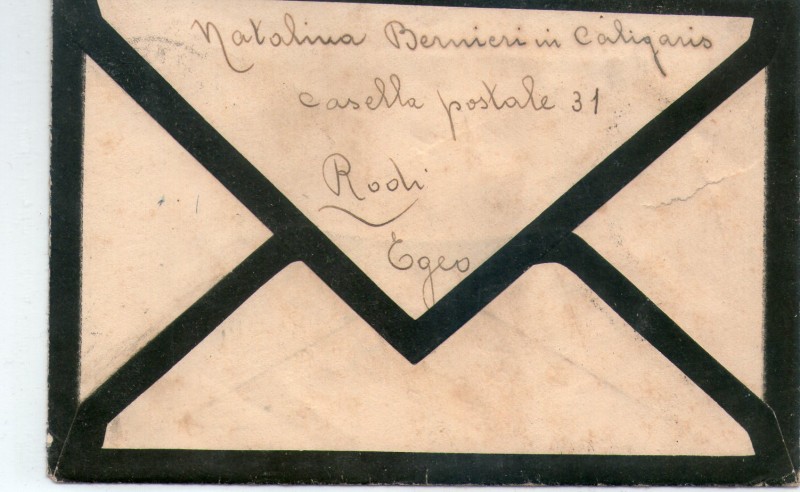 Natalina Bernieri in Caligaris
casella postale 31
Rodi
Egeo